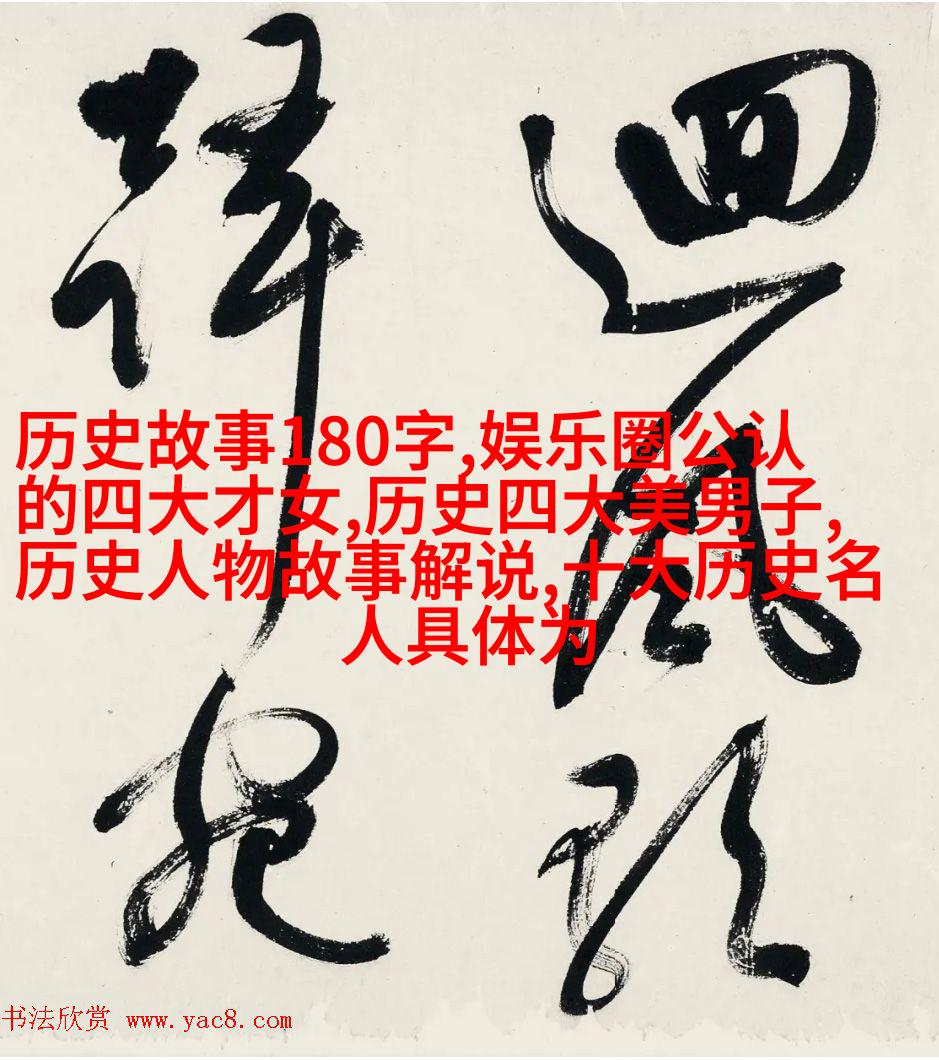 迴風
历史故事180字,娱乐圈公认
的四大才女,历史四大美男子,
历史人物故事解说,十大历史名
人具体为
书法欣赏 www.yac8.com